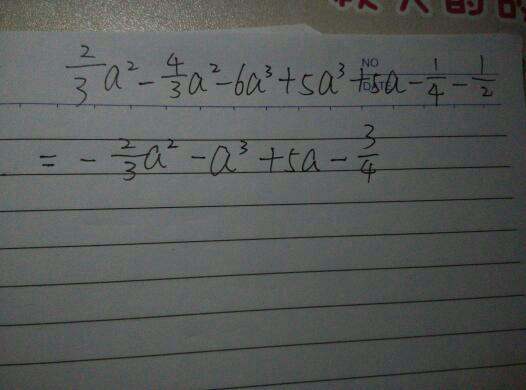 2/3 a² - 4/3 a² - 6a³ + 5a³ + 5a - 1/4 - 1/2
= - 2/3 a² - a³ + 5a - 3/4